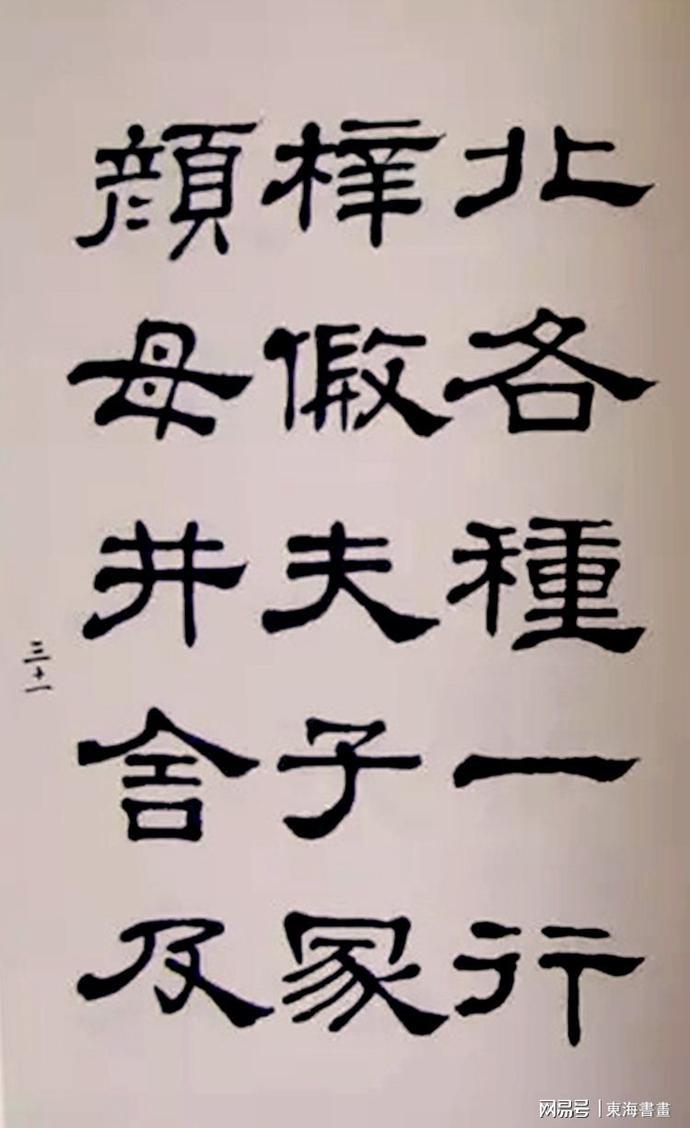 北各種一行
梓假夫子冢
顏母井舍及
三十一
网易号 | 東海書畫